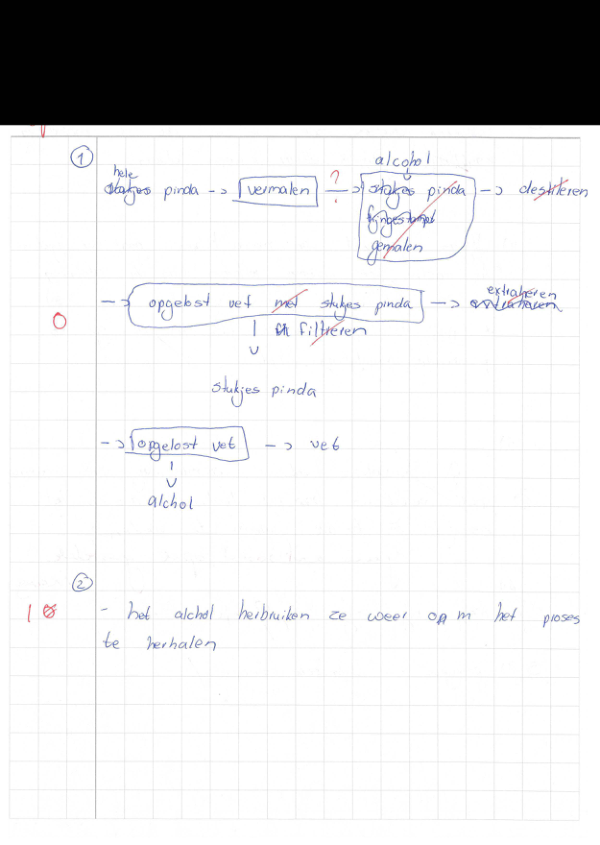 1
alcohol
hele
stukjes pinda -> vermalen ? -> stukjes pinda -> destileren
fijngestampt
gemalen
-> opgelost vet met stukjes pinda -> extraheren
0
filtreren
stukjes pinda
-> opgelost vet -> vet
alchol
2
1 0 - het alchol herbruiken ze weer op m het proses
te herhalen